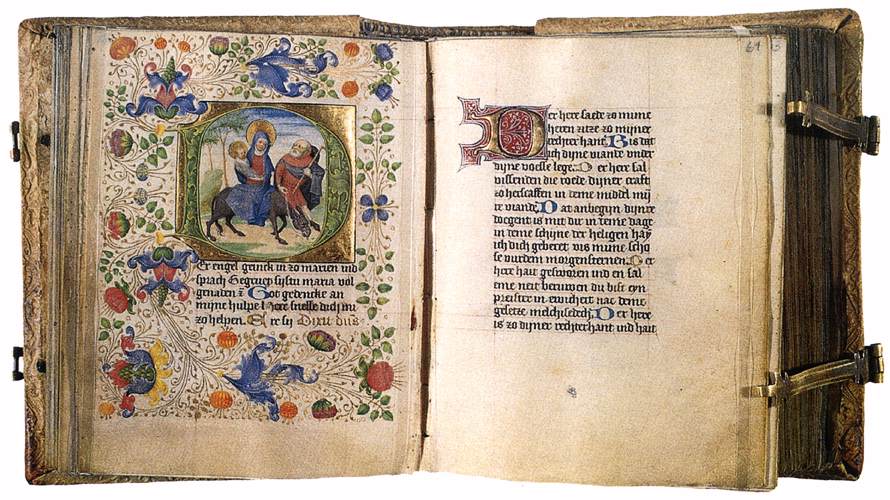 DEr engel geinck in zo marien ind
sprach Gegruet sijstu maria vol
genaden Got gedencke an
myne hulpe Here snelle dich mir
zo helpen. Ere sy Dixit dns
61
Der here saede zo myme
heren sitze zo mijner
rechter hant. Bis dat
ich dyne viande vnder
dyne voesse lege. Der here sal
vissenden die roede dijner craft
zo herscaffen in deme middel mij
re viande. Dat anbegijn dynre
doegent is mit dir in deme dage
in deme schijne der heligen hay
ich dich geberet vis myme scho
se vurdem morgensternen. Der
here hait gesworen ind en sal
eme neit beruwen du bist eyn
preister in ewicheit nae deme
gesetze melchisedech. Der here
is zo dijner rechterhant ind hait